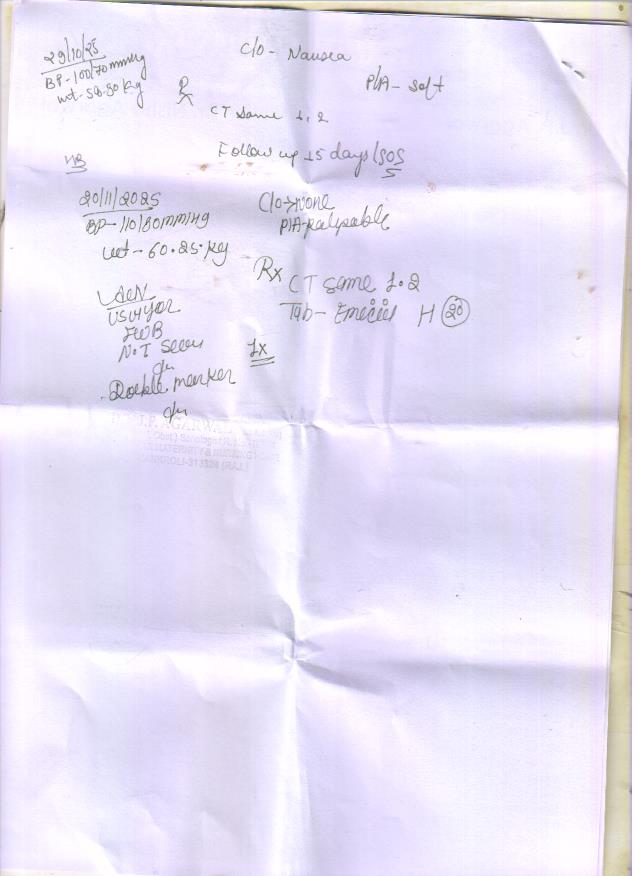 29/10/25
BP-100/70mmHg
wt-58.80 kg
C/o - Nausea
P/A - soft
Rx
CT same 1, 2
Follow up 15 days/SOS
20/11/2025
BP-110/80mmHg
wt-60.25.kg
C/o→None
P/A-palpable
Rx
CT same 1.2
Tab-
H 20
Adv
USG for
FWB
N.T Scan
Double marker
AGARWAL
MATERNITY & NURSING
KANKROLI-313324 (RAJ.)